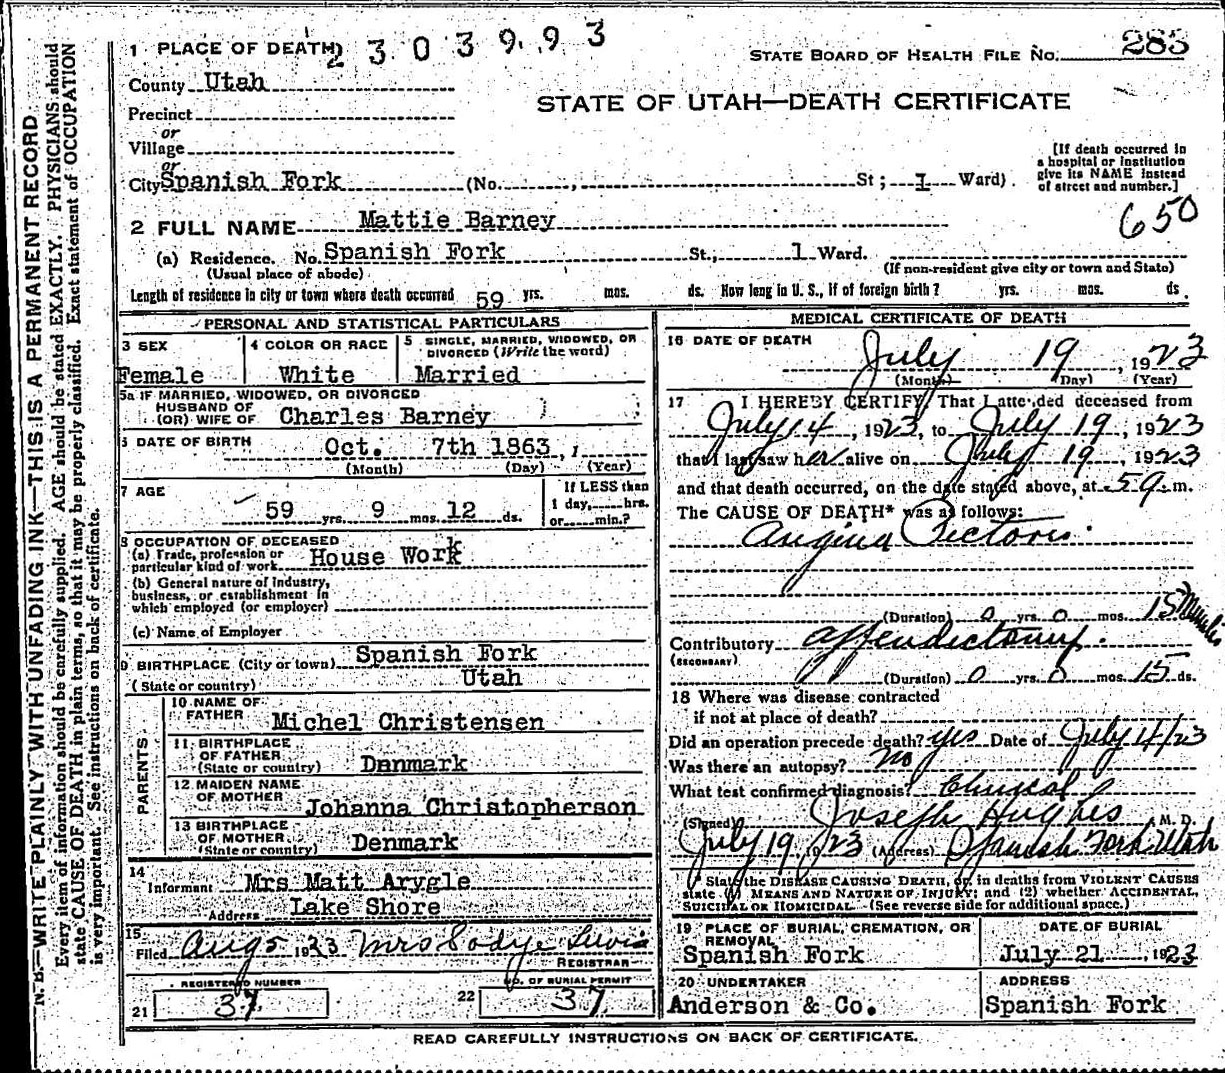 N. B.—WRITE PLAINLY WITH UNFADING INK—THIS IS A PERMANENT RECORD
Every item of information should be carefully supplied. AGE should be stated EXACTLY. PHYSICIANS should
state CAUSE OF DEATH in plain terms, so that it may be properly classified. Exact statement of OCCUPATION
is very important. See instructions on back of certificate.
2303993
STATE BOARD OF HEALTH FILE NO. 283
STATE OF UTAH—DEATH CERTIFICATE
1 PLACE OF DEATH
County Utah
Precinct
or
Village
or
City Spanish Fork (No. , St; 1 Ward)
[If death occurred in
a hospital or institution
give its NAME instead
of street and number.]
650
2 FULL NAME Mattie Barney
(a) Residence. No. Spanish Fork St., 1 Ward.
(Usual place of abode) (If non-resident give city or town and State)
Length of residence in city or town where death occurred 59 yrs. mos. ds. How long in U. S., if of foreign birth? yrs. mos. ds.
PERSONAL AND STATISTICAL PARTICULARS
3 SEX Female
4 COLOR OR RACE White
5 SINGLE, MARRIED, WIDOWED, OR
DIVORCED (Write the word)
Married
5a IF MARRIED, WIDOWED, OR DIVORCED
HUSBAND OF
(OR) WIFE OF Charles Barney
6 DATE OF BIRTH Oct. 7th 1863
(Month) (Day) (Year)
7 AGE 59 yrs. 9 mos. 12 ds.
If LESS than
1 day, hrs.
or min.?
8 OCCUPATION OF DECEASED
(a) Trade, profession or
particular kind of work House Work
(b) General nature of industry,
business, or establishment in
which employed (or employer)
(c) Name of Employer
9 BIRTHPLACE (City or town) Spanish Fork
(State or country) Utah
PARENTS
10 NAME OF
FATHER Michel Christensen
11 BIRTHPLACE
OF FATHER
(State or country) Danmark
12 MAIDEN NAME
OF MOTHER Johanna Christopherson
13 BIRTHPLACE
OF MOTHER
(State or country) Denmark
14
Informant Mrs Matt Arygle
Address Lake Shore
15
Filed Aug 5 1923 Mrs
REGISTRAR
REGISTERED NUMBER
21 37
NO. OF BURIAL PERMIT
22 37
MEDICAL CERTIFICATE OF DEATH
16 DATE OF DEATH
July 19, 1923
(Month) (Day) (Year)
17 I HEREBY CERTIFY, That I attended deceased from
July 14, 1923, to July 19, 1923
that I last saw her alive on July 19, 1923
and that death occurred, on the date stated above, at 5 a. m.
The CAUSE OF DEATH* was as follows:
Angina Pectoris
(Duration) 0 yrs. 0 mos. 15 Minutes
Contributory Appendictomy.
(SECONDARY)
(Duration) 0 yrs. 0 mos. 15 ds.
18 Where was disease contracted
if not at place of death?
Did an operation precede death? yes Date of July 4/23
Was there an autopsy? no
What test confirmed diagnosis? Clinical
(Signed) Joseph Hughes M. D.
July 19, 1923 (Address) Spanish Fork Utah
* State the DISEASE CAUSING DEATH, or, in deaths from VIOLENT CAUSES
state (1) MEANS AND NATURE OF INJURY; and (2) whether ACCIDENTAL,
SUICIDAL OR HOMICIDAL. (See reverse side for additional space.)
19 PLACE OF BURIAL, CREMATION, OR
REMOVAL
Spanish Fork
DATE OF BURIAL
July 21, 1923
20 UNDERTAKER
Anderson & Co.
ADDRESS
Spanish Fork
READ CAREFULLY INSTRUCTIONS ON BACK OF CERTIFICATE.